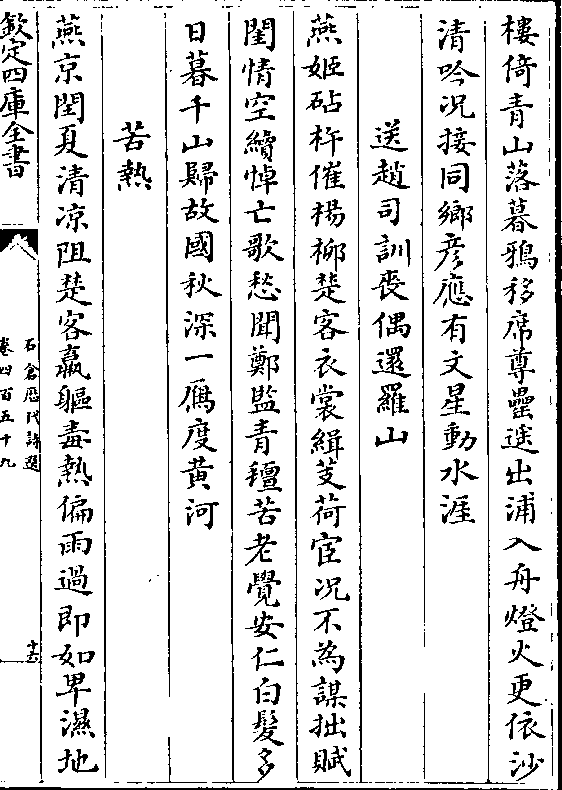 樓倚青山落暮鴉移席尊罍遥出浦入舟燈火更依沙
清吟况接同鄉彦應有文星動水涯
送趙司訓喪偶還羅山
燕姬砧杵催楊柳楚客衣裳緝芰荷宦况不為謀拙賦
閨情空續悼亡歌愁聞鄭監青氊苦老覺安仁白髮多
日暮千山歸故國秋深一鴈度黄河
苦熱
燕京閏夏清凉阻楚客羸軀毒熱偏雨過即如卑濕地
欽定四庫全書
石倉歷代詩選
卷四百五十九